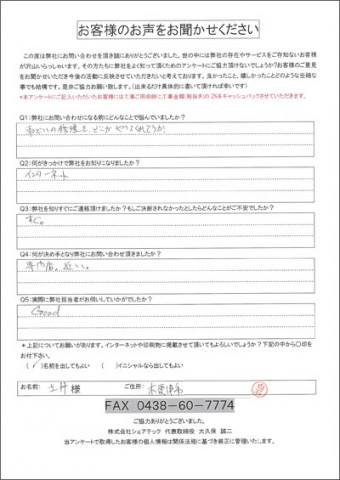 お客様のお声をお聞かせください
この度は弊社にお問い合わせを頂き誠にありがとうございました。世の中には弊社の存在やサービスをご存知ないお客様
が沢山いらっしゃいます。その方たちに弊社をよく知って頂くためのアンケートにご協力頂けないでしょうか?お客様のご意見
をお聞かせいただき今後の活動に反映させていただきたいと考えております。良かったこと、嬉しかったことどのような些細な
事でも結構です。是非ご協力お願い致します。(出来るだけ具体的に書いて頂ければ幸いです)
*本アンケートにご記入いただいたお客様には工事ご用命時に工事金額(税抜き)の2%をキャッシュバックさせていただきます。
Q1:弊社にお問い合わせになる前にどんなことで悩んでいましたか?
雨どいの修理を、どこがやってくれてるか
Q2:何がきっかけで弊社をお知りになりましたか?
インターネット
Q3:弊社を知りすぐにご連絡頂けましたか?もしご決断されなかったとしたらどんなことがご不安でしたか?
Q4:何が決め手となり弊社にお問い合わせ頂きましたか?
専門店。近い。
Q5:実際に弊社担当者がお伺いしていかがでしたか?
Good
*上記についてお願いがあります。インターネットや印刷物に掲載させて頂いてもよろしいでしょうか?下記の中から〇印を
お付け下さい。
(✓)名前を出してもよい ( )イニシャルなら出してもよい
お名前: 様 ご住所: 木更津市
FAX 0438-60-7774
ご協力ありがとうございました。
株式会社シェアテック 代表取締役 大久保 誠二
当アンケートで取得したお客様の個人情報は関係法規に基づき厳正に管理いたします。